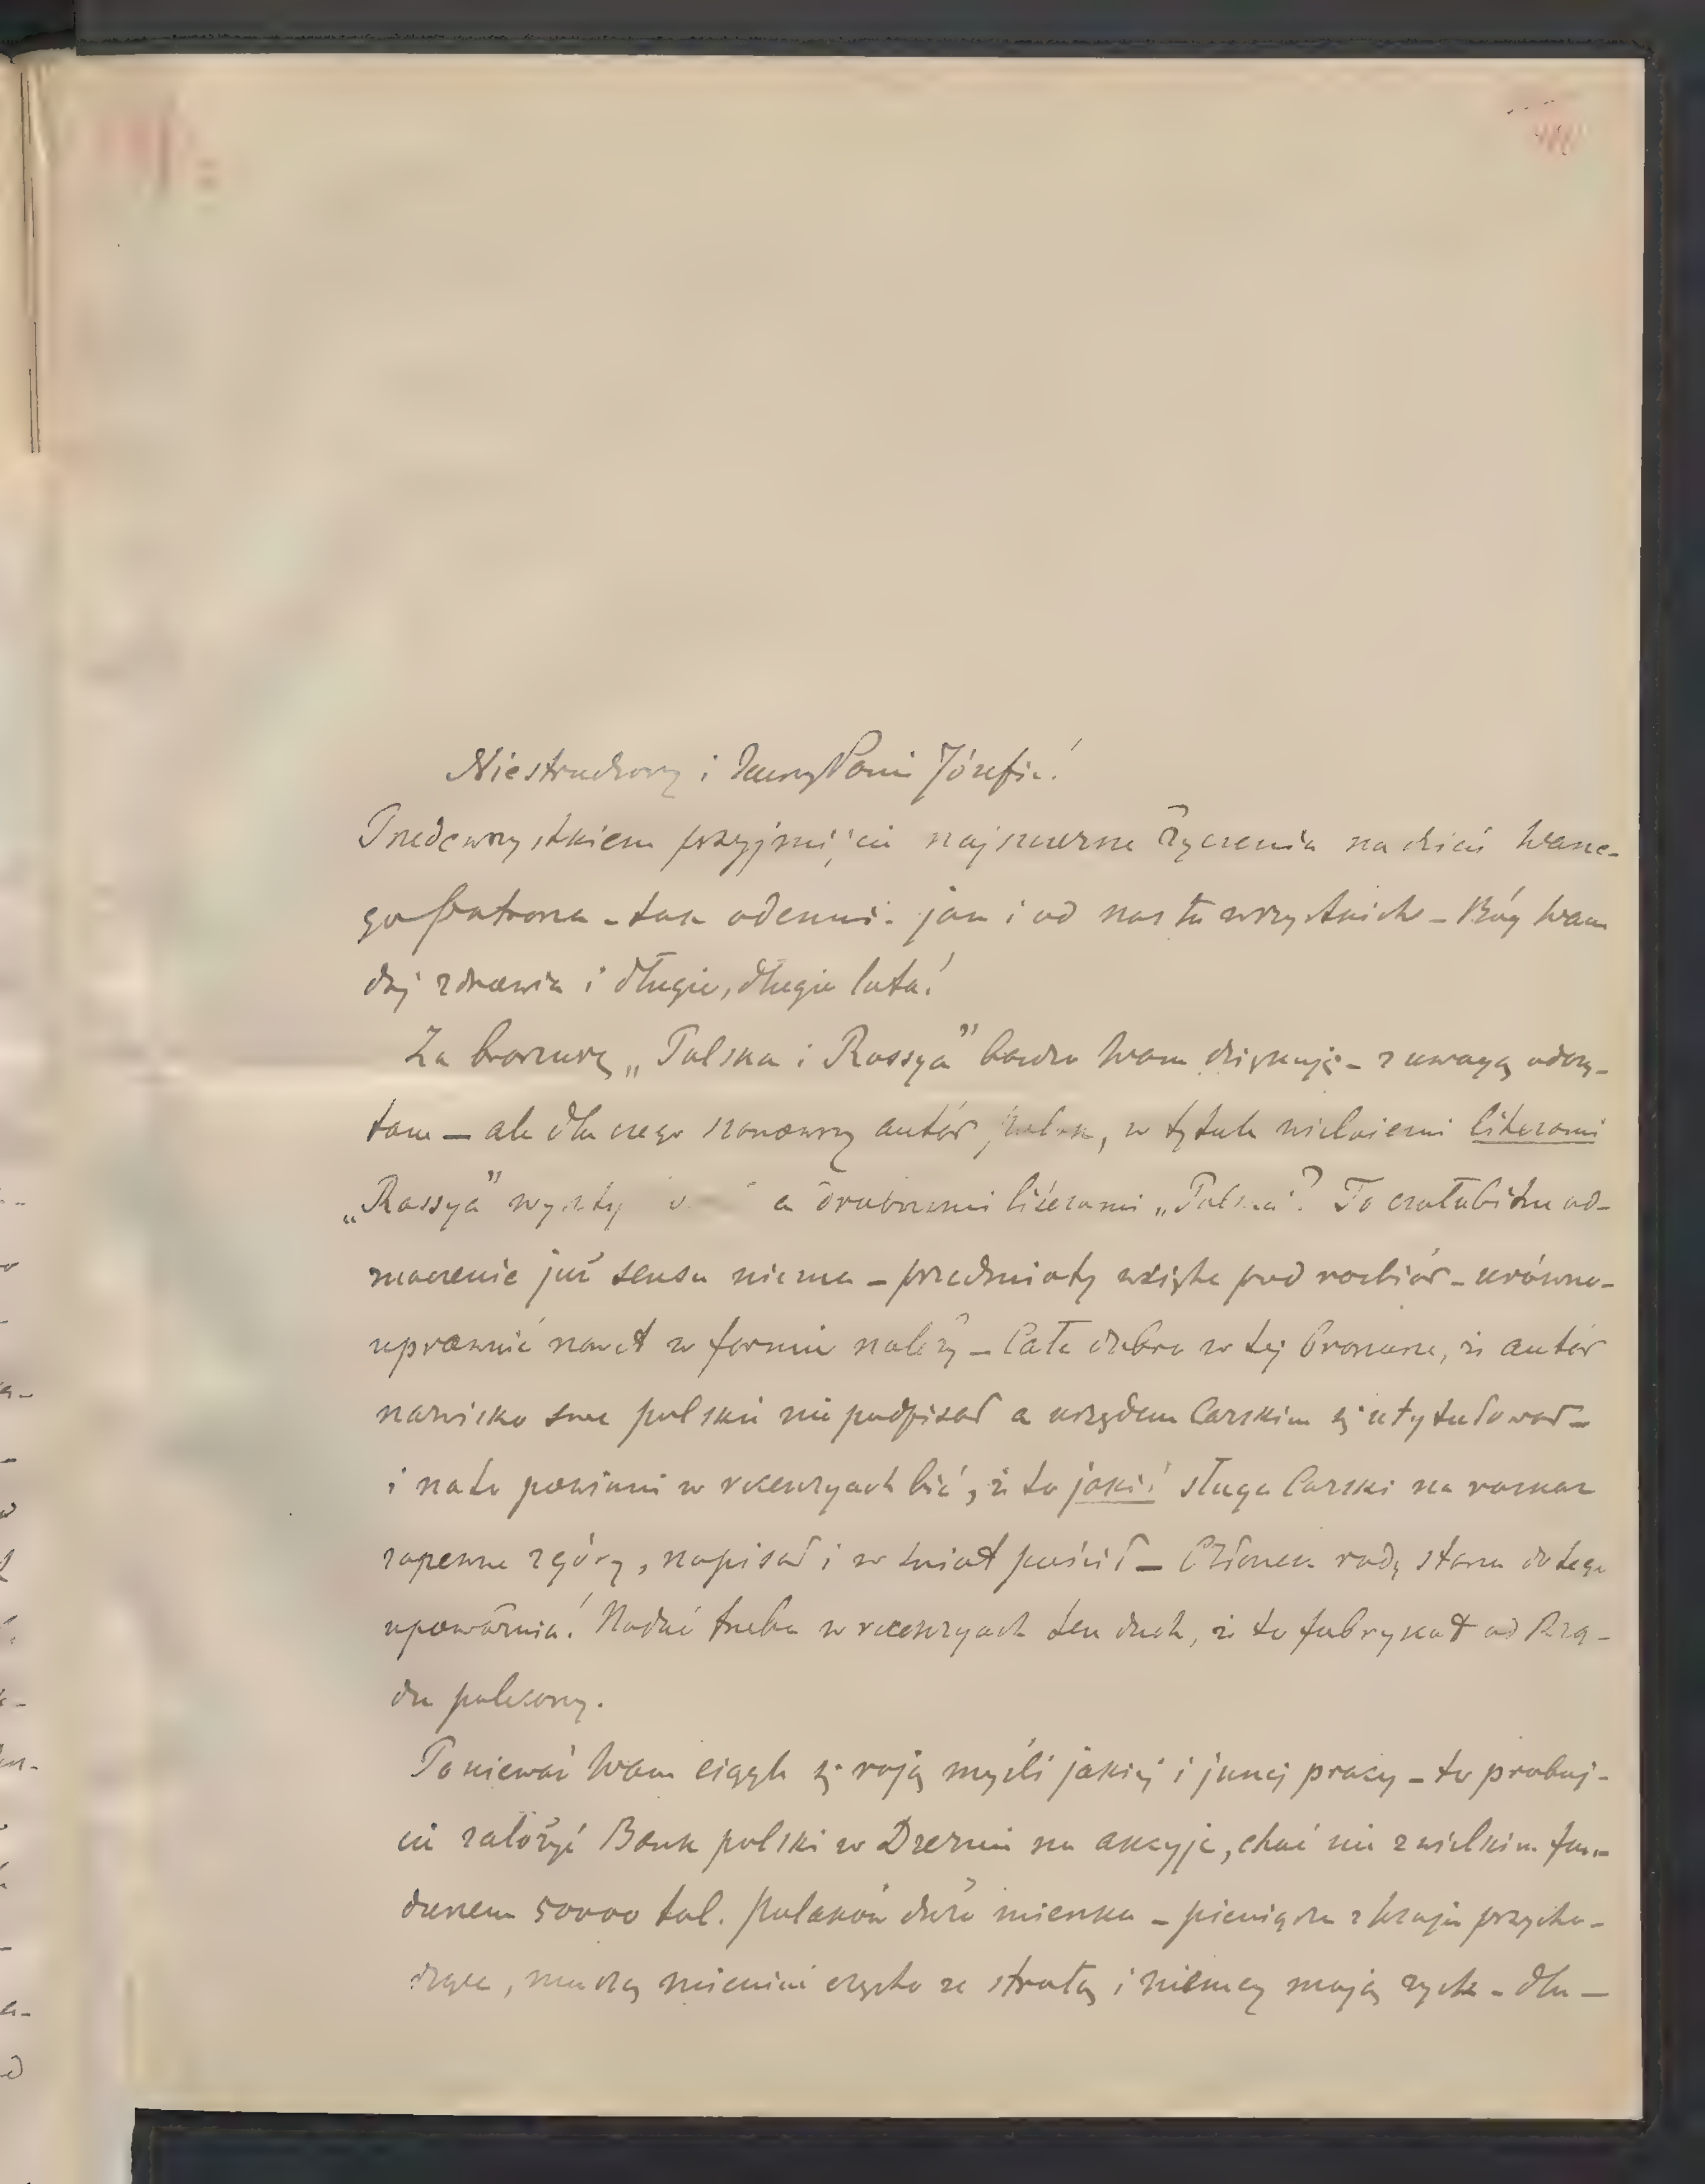 Niestrudzony i Zacny Panie Józefie!
Przedewszystkiem przyjmijcie najszczersze życzenia na dzień Wasze-
go patrona – tak odemnie jak i od nas tu wszystkich – Bóg Wam
daj zdrowia i długie, długie lata!
Za broszurę „Polska i Rossya” bardzo Wam dziękuję – z uwagą odczy-
tam – ale dla czego szanowny autór, w tytule wielkiemi literami
„Rossya” a drobnemi literami „Polska”? To
znaczenie już sensu niema – przedmioty wzięte pod rozbiór – równo-
uprawnić nawet w formie należy – Całe dobro w tej broszurze, iż autór
nazwisko swe polskie nie podpisał a urzędem Carskim się utytułował –
i na to powinni w recenzyach bić, iż to jakiś sługa Carski na rozkaz
zapewne z góry, napisał i w świat puścił – Członek rady stanu do tego
upoważnia! Nadać trzeba w recenzyach ten duch, iż to fabrykat od Rzą-
du polecony.
Ponieważ Wam ciągle się roją myśli jakiej i innej pracy – to probuj-
cie założyć Bank polski w Dreznie na akcyje, choć nie z wielkim fun-
duszem 50000 tal. polaków dużo mieszka – pieniądze z kraju przycho-
dzące, muszą mieniać często ze stratą i niemcy mają zysk – dla –